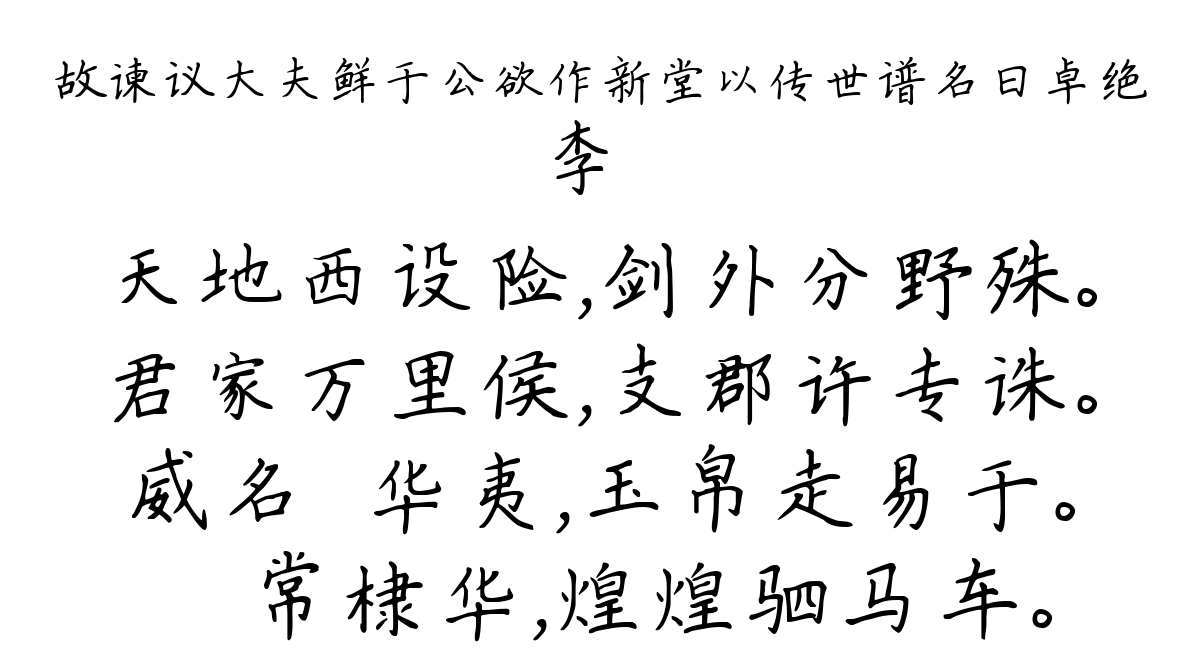 故谏议大夫鲜于公欲作新堂以传世谱名曰卓绝
李
天地西设险,剑外分野殊。
君家万里侯,支郡许专诛。
威名 华夷,玉帛走易于。
常棣华,煌煌驷马车。